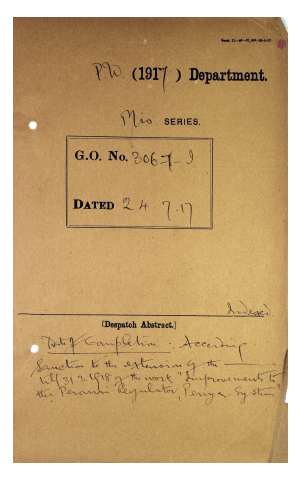 P.W. (1917) Department.
Mis SERIES.
G.O. No. 3067-I
DATED 24.7.17
Indexed
[Despatch Abstract.]
Date of Completion : According
Sanction to the extension of the
till 31.3.1918 of the work "Improvements to
the Peranai Regulator, Periyar System"